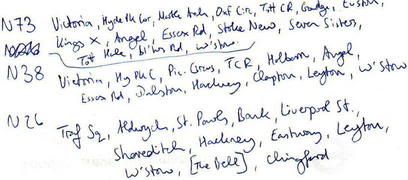 N73 Victoria, Hyde Pk Cor, Marble Arch, Oxf Circ, Tott CR, Goodge, Euston,
Kings X, Angel, Essex Rd, Stoke New, Seven Sisters,
Tott Hale, Rd, W'stow.
N38 Victoria, Hy Pk C, Pic. Circus, TCR, Holborn, Angel,
Essex Rd, Dalston, Hackney, Clapton, Leyton, W'stow
N26 Traf Sq, Aldwych, St. Pauls, Bank, Liverpool St.,
Shoreditch, Hackney, Eastway, Leyton,
W'stow, [The Bell], Chingford